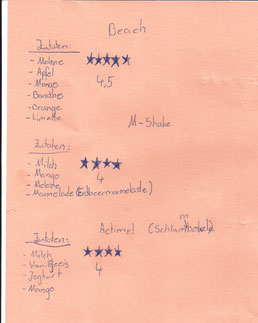 Beach
Zutaten:
- Melone
- Apfel
- Mango
- Banane
- Orange
- Limette
4,5
M-Shake
Zutaten:
- Milch
- Mango
- Melone
- Marmelade (Erdbeermarmelade)
4
Actimel
Zutaten:
- Milch
- Vanilleeis
- Joghurt
- Mango
4